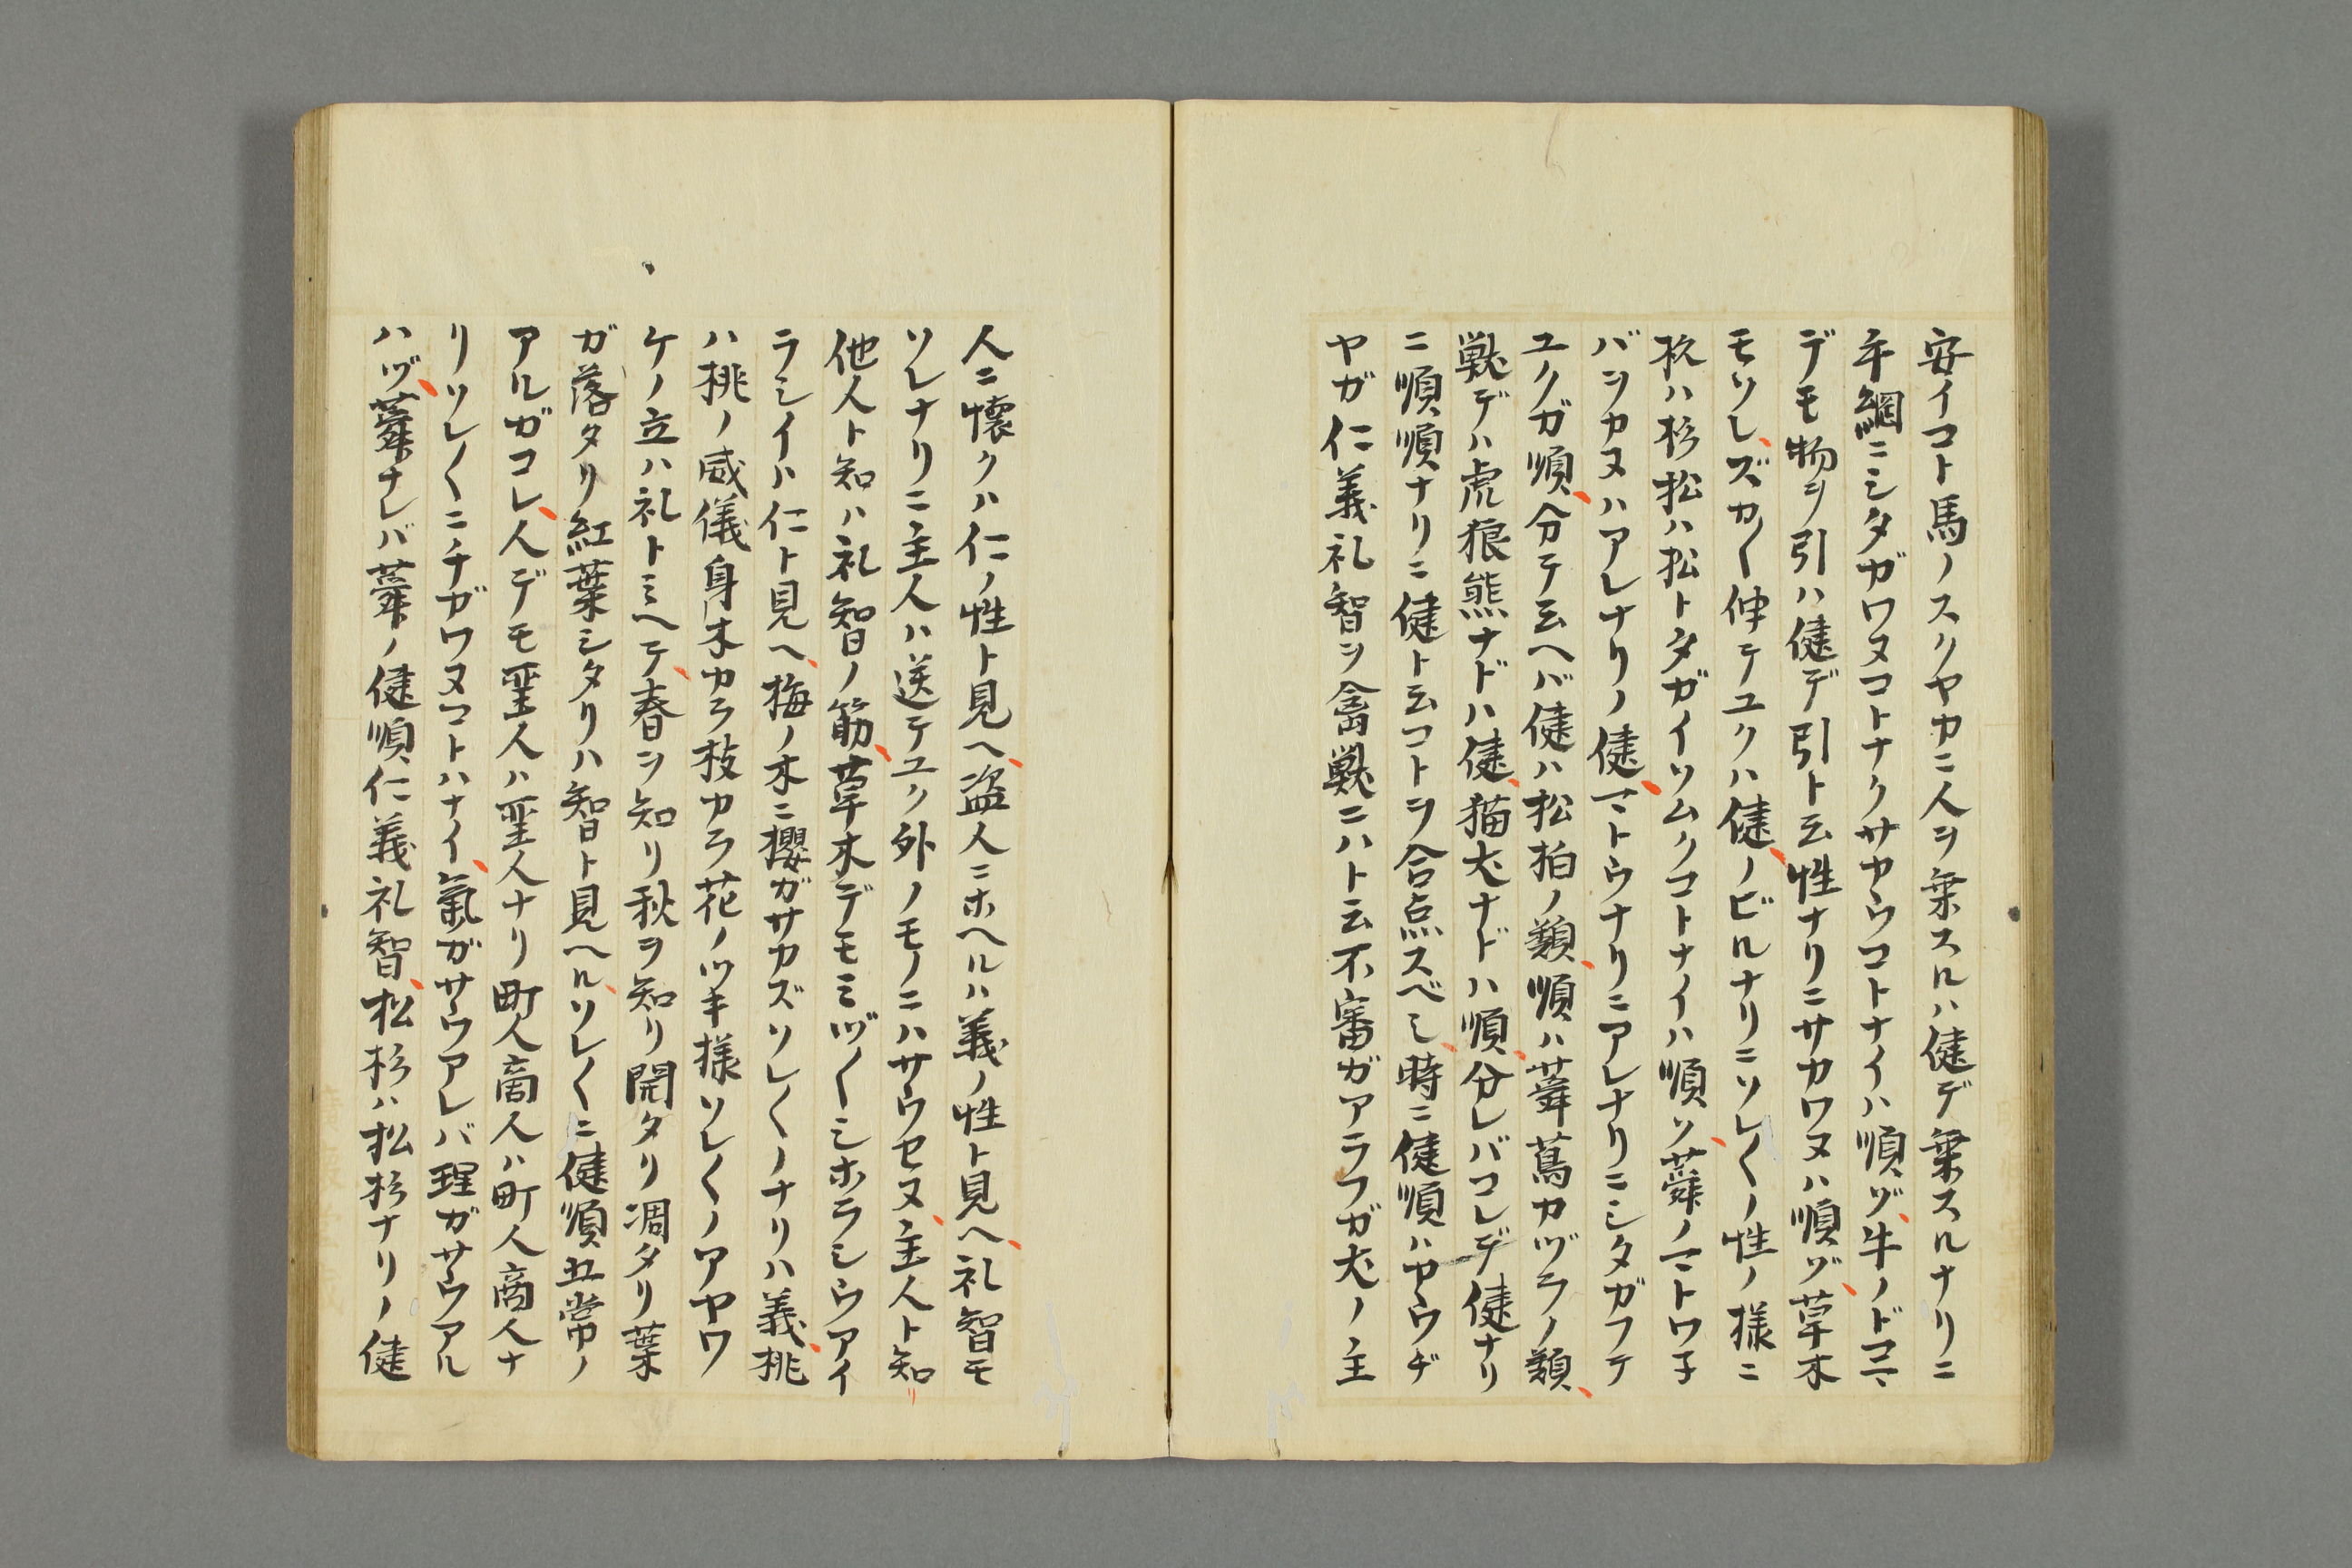 安イコト馬ノスクヤカニ人ヲ乗スルハ健デ乗スルナリニ
手綱ニシタガワヌコトナクサヤウコトナイハ順ゾ牛ノドコマ
デモ物ヲ引ハ健デ引ト云性ナリニサカワヌハ順ゾ草木
モソレズカ〱伸テユクハ健ノビルナリニソレ〱ノ性ノ様ニ
杦ハ杉松ハ松トタガイソムクコトナイハ順ソ蕣ノマトワ子
バヲカヌハアレナリノ健マトウナリニアレナリニシタガフテ
ユクガ順分テ云ヘバ健ハ松柏ノ類順ハ蕣蔦カヅラノ類
獣デハ虎狼熊ナドハ健猫犬ナドハ順分レバコレデ健ナリ
ニ順順ナリニ健ト云コトヲ合点スベシ時ニ健順ハヤウヂ
ヤガ仁義礼智ヲ禽獣ニハト云不審ガアラフガ犬ノ主
人ニ懐クハ仁ノ性ト見ヘ盗人ニホヘルハ義ノ性ト見ヘ礼智モ
ソレナリニ主人ハ送テユク外ノモノニハサウセヌ主人ト知
他人ト知ハ礼智ノ筋草木デモミヅ〱シホラシウアイ
ラシイハ仁ト見ヘ梅ノ木ニ櫻ガサカズソレ〱ノナリハ義桃
ハ桃ノ威儀身木カラ枝カラ花ノツキ様ソレ〱ノアヤワ
ケノ立ハ礼トミヘテ春ヲ知リ秋ヲ知リ開タリ凋タリ葉
ガ落タリ紅葉シタリハ智ト見ヘルソレ〱ニ健順五常ノ
アルガコレ人デモ聖人ハ聖人ナリ町人商人ハ町人商人ナ
リソレ〱ニチガワヌコトハナイ氣ガサウアレバ理ガサウアル
ハヅ蕣ナレバ蕣ノ健順仁義礼智松杉ハ松杉ナリノ健